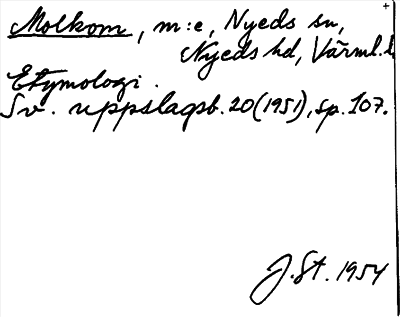 +
Molkom, m:e, Nyeds sn,
Nyeds hd, Värml.l.
Etymologi.
Sv. uppslagsb. 20(1951), sp. 107.
J. St. 1954